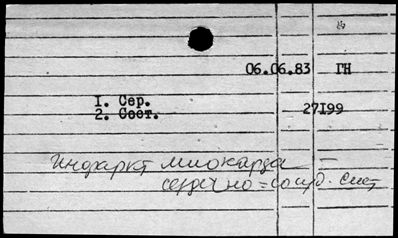 06.06.83 ГН
I. Сер.
2. Сост. 27I99
Инфаркт миокарда –
сердечно=сосуд. сист